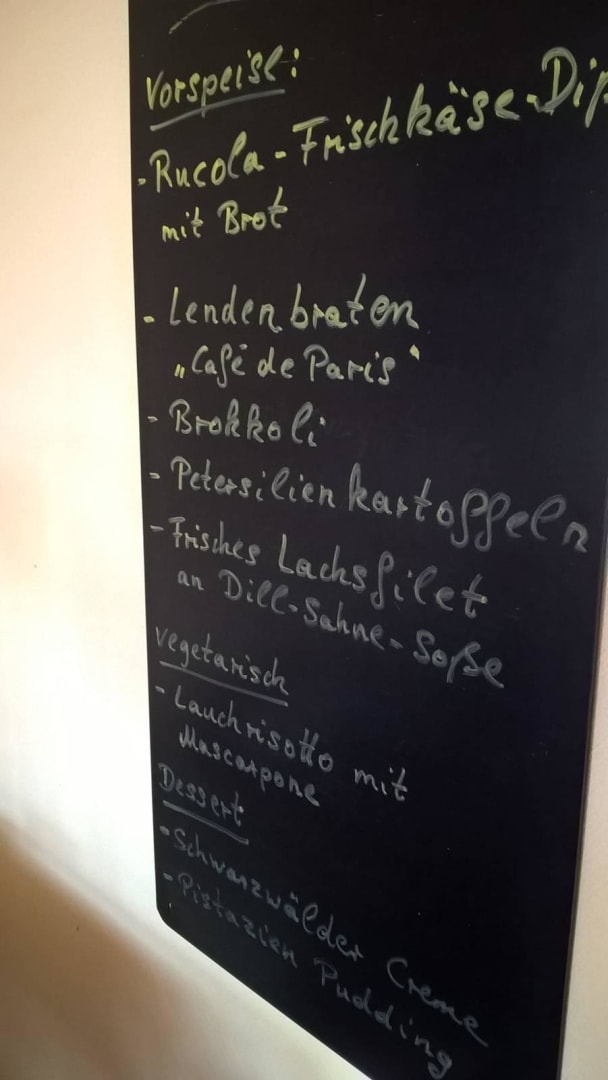 Vorspeise:
- Rucola - Frischkäse-Dip
mit Brot
- Lendenbraten
„Café de Paris“
- Brokkoli
- Petersilienkartoffeln
- Frisches Lachsfilet
an Dill-Sahne-Soße
vegetarisch
- Lauchrisotto mit
Mascarpone
Dessert
- Schwarzwälder Creme
- Pistazien Pudding